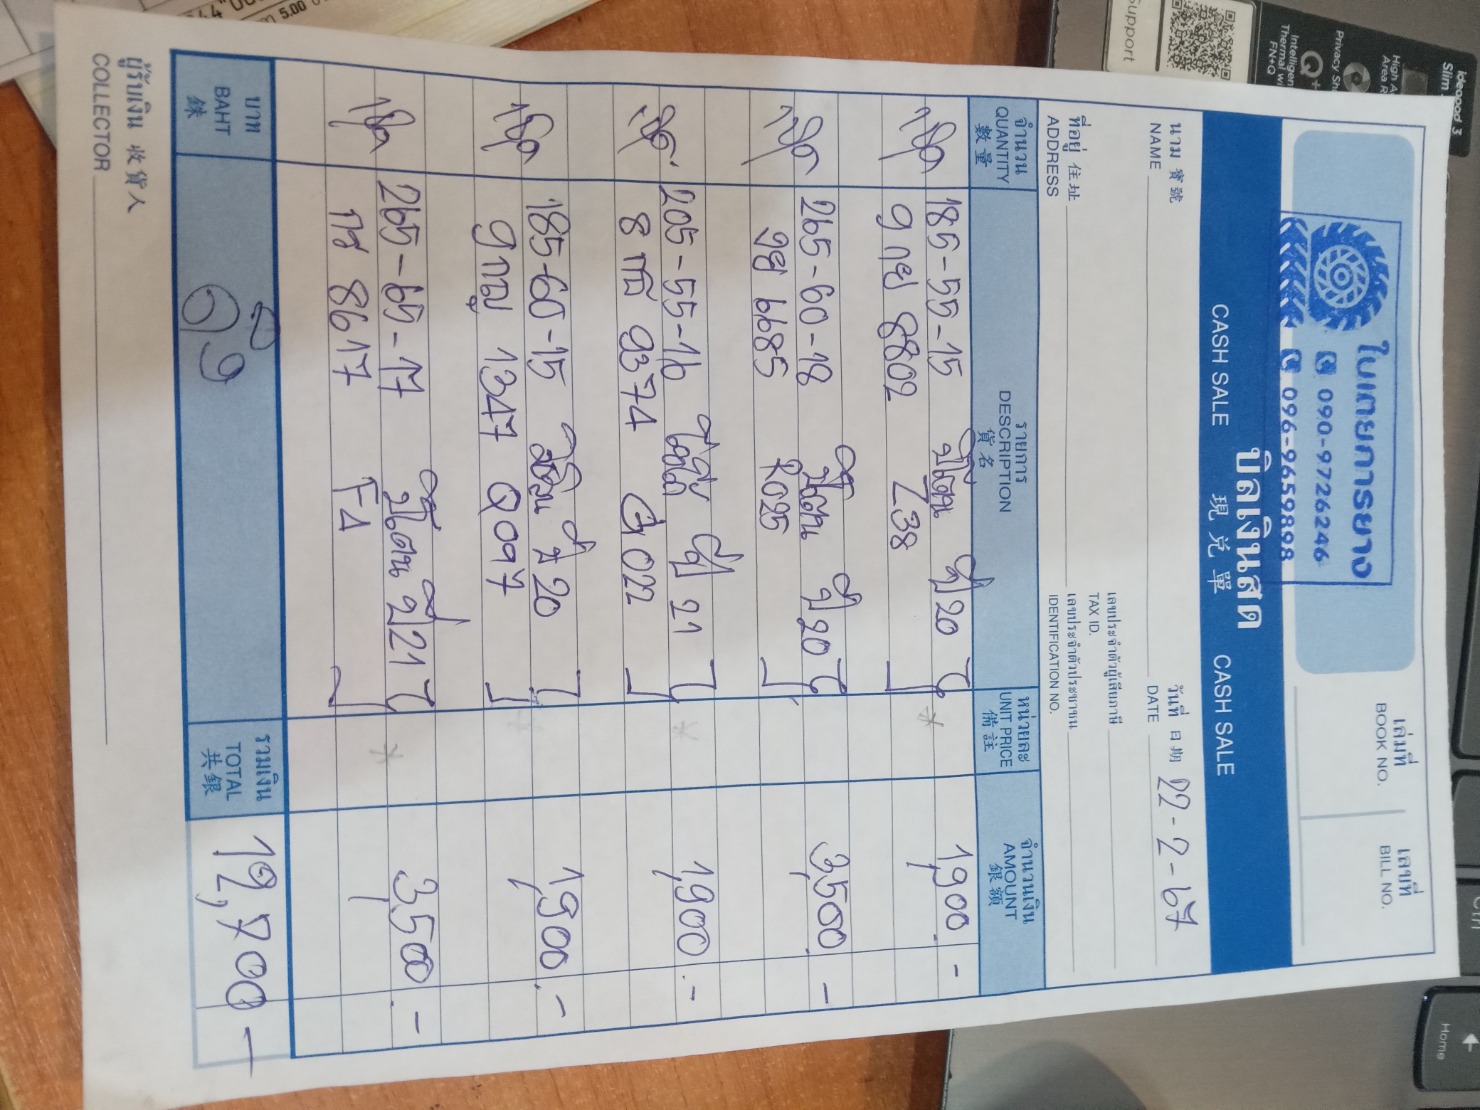 ใบเตยการยาง
090-9726246
096-9659898
เล่มที่
BOOK NO.
เลขที่
BILL NO.
บิลเงินสด
CASH SALE 現兌單 CASH SALE
นาม 寶號
NAME
วันที่ 日期
DATE 22-2-67
ที่อยู่ 住址
ADDRESS
เลขประจำตัวผู้เสียภาษี
TAX ID.
เลขประจำตัวประชาชน
IDENTIFICATION NO.
จำนวน
QUANTITY
數量
รายการ
DESCRIPTION
貨名
หน่วยละ
UNIT PRICE
備註
จำนวนเงิน
AMOUNT
銀額
1ชุด 185-55-15 ปี20 1,900.-
9กย 8802 Z38
1ชุด 265-60-18 ปี20 3,500.-
6685 R025
1ชุด 205-55-16 ปี 21 1,900.-
8กC 9374 022
1ชุด 185-60-15 ปี 20 1,900.-
9กญ 1347 Q097
1ชุด 265-65-17 ปี21 3,500.-
กส 8617 F4
บาท
BAHT
銖
รวมเงิน
TOTAL
共銀
12,700-
ผู้รับเงิน 收貨人
COLLECTOR